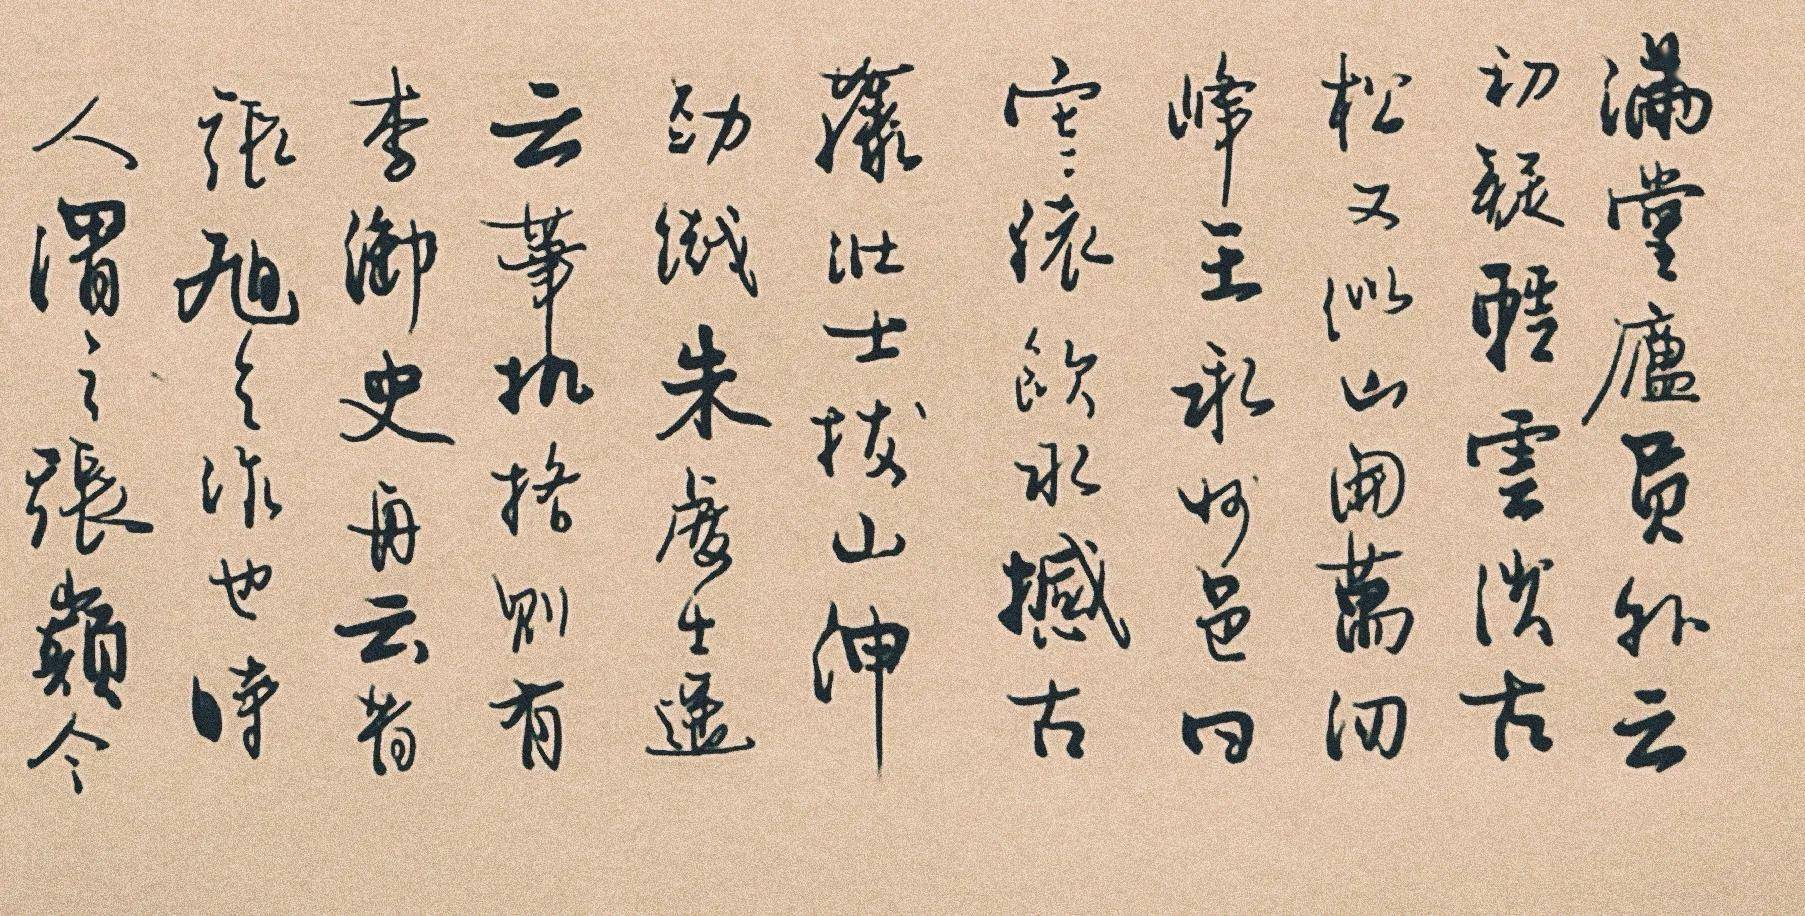 滿堂廬員外云
初疑輕雲淡古
松又似山開萬仞
峰王永州邕曰
寒猿飲水撼古
藤壯士拔山伸
勁鐵朱處士遙
云筆机格則有
李御史舟云昔
張旭之作也時
人謂之張顛今